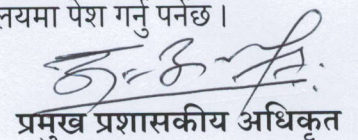 लयमा पेश गर्नु पर्नेछ ।
प्रमुख प्रशासकीय अधिकृत